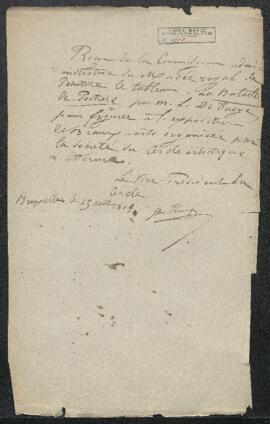 Reçu de la Commission admi-
nistrative du Musée royal de
Peinture le tableau La Bataille
de Poitiers par M. L. De Taeye
pour figurer à l'exposition
de Beaux-arts organisée par
la Société du Cercle artistique
& littéraire
Le Vice-Président du
Cercle
Bruxelles le 25 août